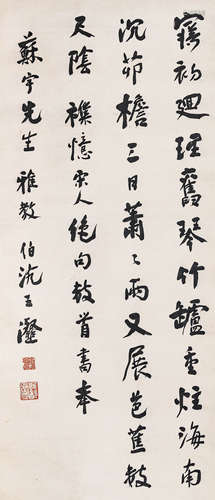 初廻理舊琴竹罏重炷海南
沉茆檐三日蕭〻雨又展芭蕉數
尺陰 襍憶宋人絶句數首書奉
蘇宇先生 雅教 伯沆王瀣